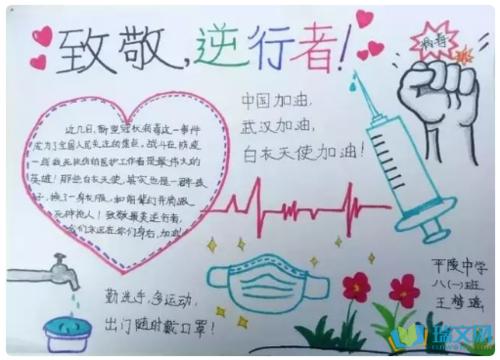 致敬,逆行者!
病毒
中国加油,
武汉加油,
白衣天使加油!
这几日,新型冠状病毒这一事件
成为了全国人民关注的焦点,战斗在防疫
一线救死扶伤的医护工作者是最伟大的
英雄!那些白衣天使,其实也是一群孩
子,换了一身衣服,和前辈们并肩跟
死神抢人!致敬最美逆行者,
我们永远在你们身后,加油
勤洗手,多运动,
出门随时戴口罩!
平陵中学
八(一)班
王梦瑶
瑞文网